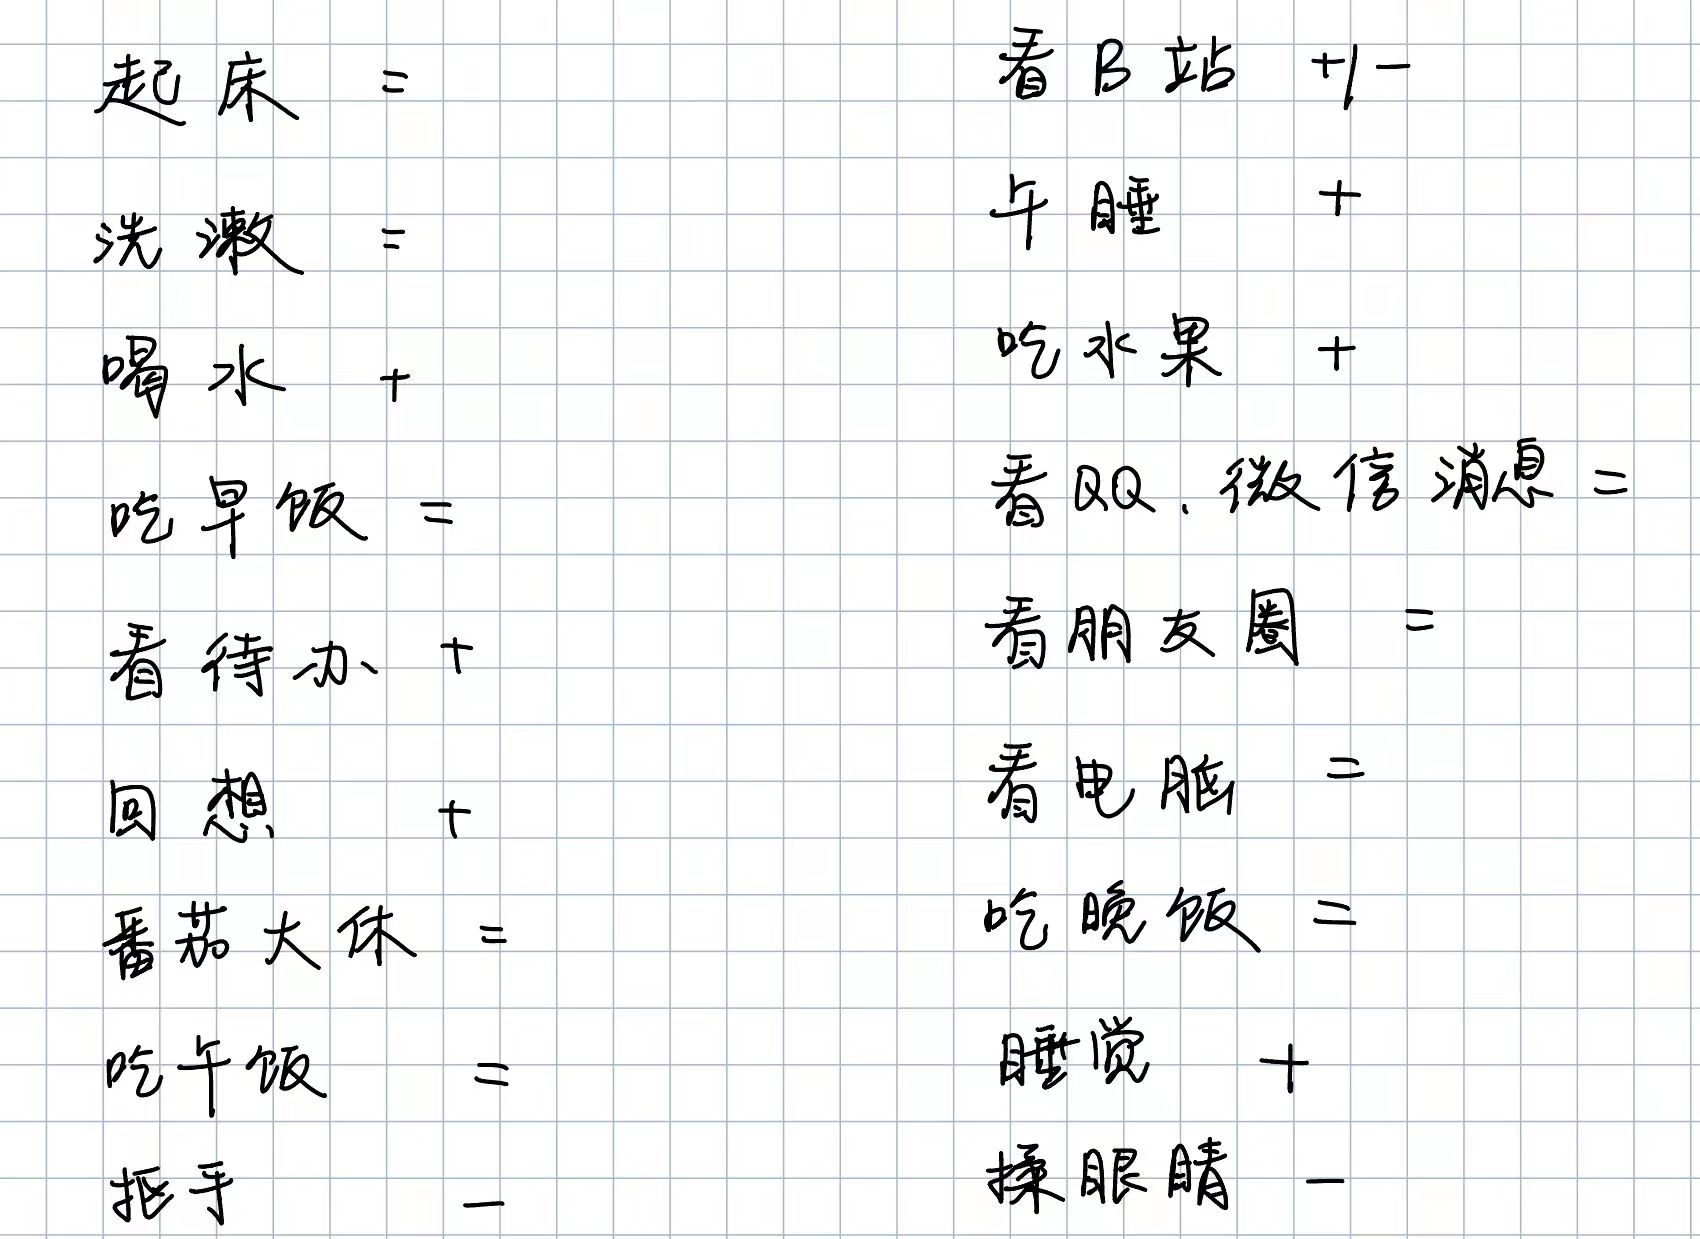 起床 =
洗漱 =
喝水 +
吃早饭 =
看待办 +
回想 +
番茄大休 =
吃午饭 =
抠手 -
看B站 +/-
午睡 +
吃水果 +
看QQ、微信消息 =
看朋友圈 =
看电脑 =
吃晚饭 =
睡觉 +
揉眼睛 -